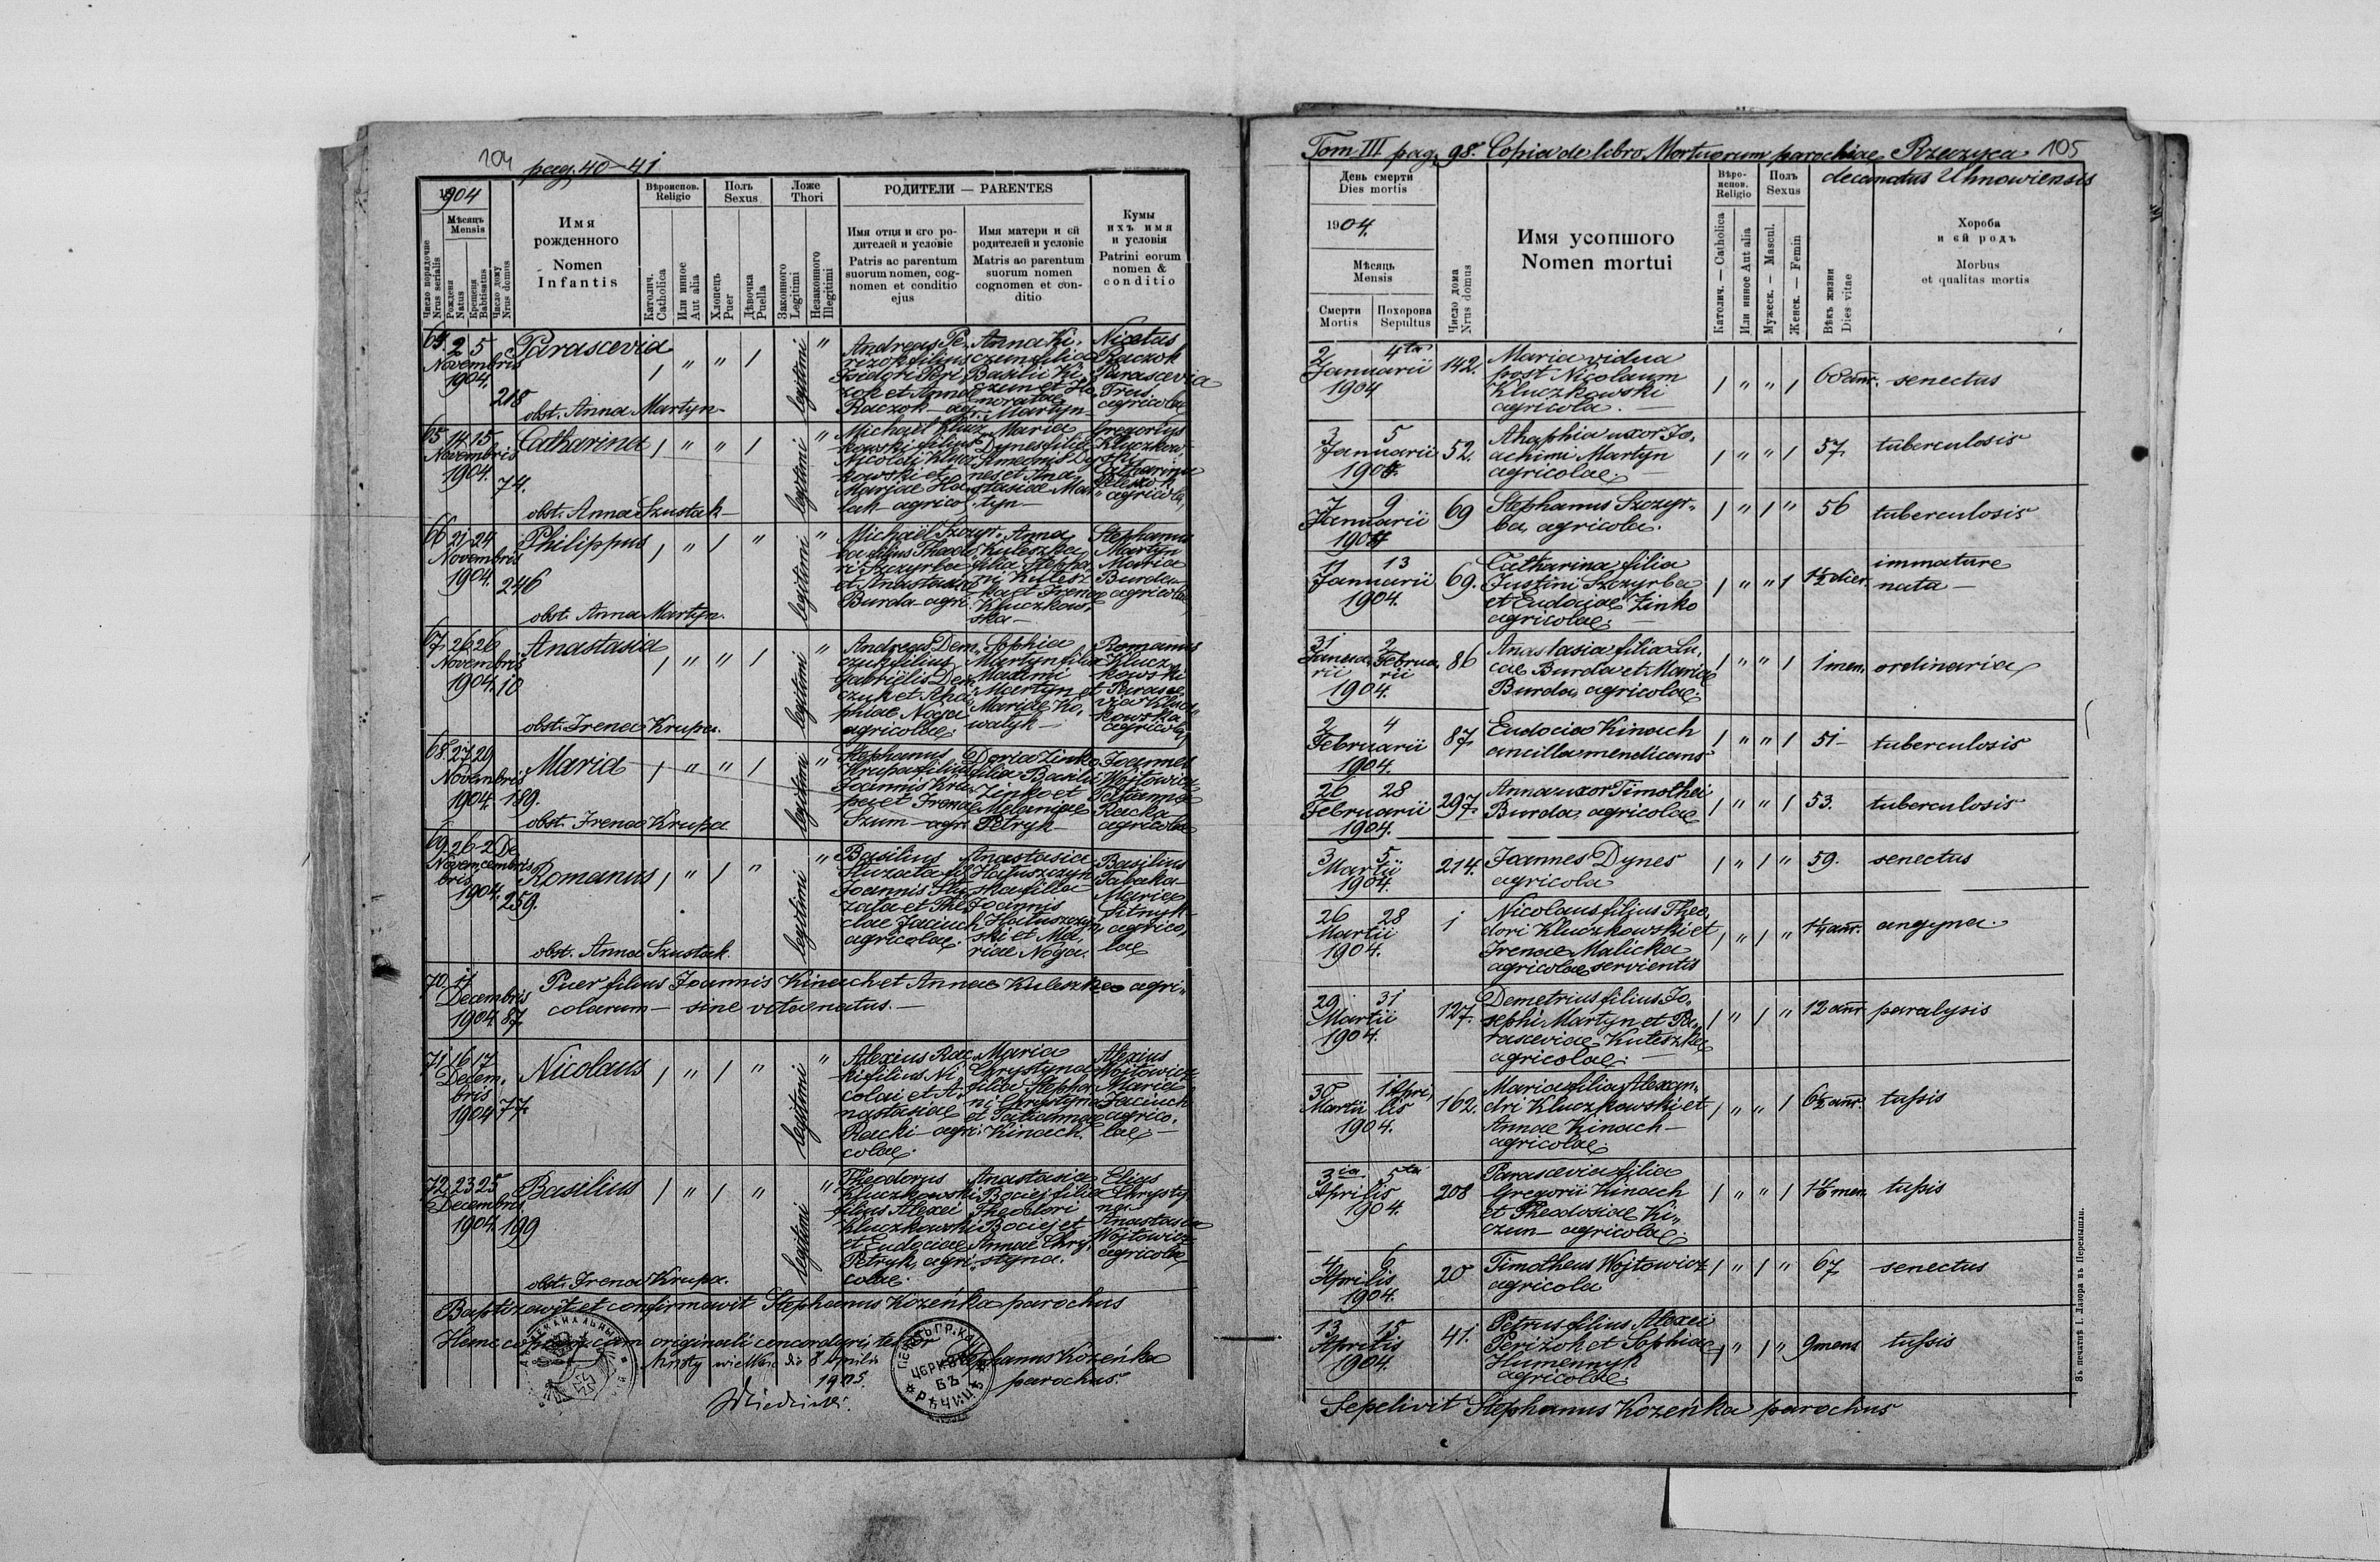 104 pag. 40-41
1904
Мѣсяцъ
Mensis
Число порядочне
Nrus serialis
Рожденя
Natus
Крещеня
Babtisatus
Число дому
Nrus domus
Имя
рожденного
Nomen
Infantis
Вѣроиспов.
Religio
Католич.
Catholica
Или инное
Aut alia
Полъ
Sexus
Хлопець
Puer
Дѣвочка
Puella
Ложе
Thori
Законного
Legitimi
Незаконного
Illegitimi
РОДИТЕЛИ — PARENTES
Имя отця и єго ро-
дителей и условіє
Patris ac parentum
suorum nomen, cog-
nomen et conditio
ejus
Имя матери и єй
родителей и условіє
Matris ac parentum
suorum nomen
cognomen et con-
ditio
Кумы
ихъ имя
и условія
Patrini eorum
nomen &
conditio
64 2 5
Novembris
1904.
218
Parascevia
/ " " /
legitimi "
obst. Anna Martyn
Andreas Pe-
rizok filius
Isidori Peri-
zok et Anna
Raczok - agr.
Anna Ki-
czun filia
Basilii Ki-
czun et Ho-
noratae
Martyn
Nicetas
Raczok
Parascevia
Tras
agricolae
65 14 15
Novembris
1904.
74.
Catharina
/ " " /
legitimi "
obst. Anna Szustak
Michael Klucz-
kowski filius
Nicolai Klucz-
kowski et
Mariae Ho-
lak - agrico.
Maria
Dynes filia
Simeonis Dy-
nes et Ana-
stasiae Mar-
tyn
Gregorius
Kluczkow-
ski
Catharina
agricolae
66 21 24
Novembris
1904.
246
Philippus
/ " / "
legitimi "
obst. Anna Martyn.
Michaël Szczyr-
ba filius Theodo-
ri Szczyrba
et Anastasiae
Burda - agri.
Anna
Kuleszka
filia Stepha-
ni Kulesz-
ka et Irenae
Kluczkow-
ska
Stephanus
Martyn
Maria
Burda
agricolae
67 26 26
Novembris
1904. 10
Anastasia
/ " " /
legitimi "
obst. Irena Krupa.
Andreas Dem-
czuk filius
Gabriëlis Dem-
czuk et Aha-
phiae Noga
agricolae.
Sophia
Martyn filia
Maximi
Martyn et
Mariae Ko-
walyk
Romanus
Klucz-
kowski
Parasce-
via Klucz-
kowska
agricolae
68. 27 29
Novembris
1904. 189.
Maria
/ " " /
legitimi "
obst. Irena Krupa
Stephanus
Krupa filius
Joannis Kru-
pa et Irenae
Szum - agri.
Daria Zinko
filia Basilii
Zinko et
Melaniae
Petryk
Joannes
Wojtowicz
Tatianna
Racka
agricolae
69. 26 2 De-
Novem- cembris
bris
1904.
259.
Romanus
/ " / "
legitimi "
obst. Anna Szustak.
Basilius
Joannis
zata et The-
clae Jaciuch
agricolae.
Anastasia
ska filia
Joannis
ski et Ma-
riae Noga.
Basilius
Tabaka
Maria
Sitnyk
agrico-
lae
70. 11
Decembris
1904. 87
Puer filius Joannis Kinach et Annae Kuleszka agri-
colarum - sine vita natus. -
71 16 17
Decem-
bris
1904 77.
Nicolaus
/ " / "
legitimi "
Alexius Rac-
ki filius Ni-
colai et A-
nastasiae
Racki - agri-
colae.
Maria
Chrystyna
filia Stepha-
ni Chrystyna
et Tatiannae
Kinach.
Alexius
Wojtowicz
Maria
Jaciuch
agrico-
lae. -
72 23 25
Decembris
1904. 199
Basilius
/ " / "
legitimi "
obst. Irena Krupa.
Theodorus
Kluczkowski
filius Alexei
Kluczkowski
et Eudociae
Petryk, agri-
colae.
Anastasia
Bociej filia
Theodori
Bociej et
Annae Chry-
styna.
Elias
Chrysty-
na
Anastasia
Wojtowicz
agricolae
Baptizavit et confirmavit Stephanus Kozeńka parochus
Hanc copiam cum originali concordari, testor
die 8 Aprilis
1905.
Stephanus Kozeńka
parochus.
Tom III pag. 98. Copia de libro Mortuorum parochiae Rzeczyca 105
decanatus Uhnowiensis
День смерти
Dies mortis
1904.
Мѣсяць
Mensis
Смерти
Mortis
Похорона
Sepultus
Число дома
Nrus domus
Имя усопшого
Nomen mortui
Вѣро-
испов.
Religio
Католич. — Catholica
Или инное Aut alia
Полъ
Sexus
Мужеск. — Mascul.
Женск. — Femin
Вѣкъ жизни
Dies vitae
Хороба
и єй родъ
Morbus
et qualitas mortis
2 4ta
Januarii
1904
142.
Maria vidua
post Nicolaum
Kluczkowski
agricola. -
/ " " / 60 ann. senectus
3 5
Januarii
1904.
52.
Ahaphia uxor Jo-
achimi Martyn
agricolae. -
/ " " / 57 tuberculosis
7 9
Januarii
1904
69
Stephanus Szczyr-
ba, agricola.
/ " / " 56 tuberculosis
11 13
Januarii
1904.
69.
Catharina filia
Justini Szczyrba
et Eudociae Zinko
agricolae. -
/ " " / 1½ dier. immature
nata -
31 2
Janua- Februa-
rii rii
1904.
86
Anastasia filia Lu-
cae Burda et Mariae
Burda, agricolae.
/ " " / 1 men. ordinaria
2 4
Februarii
1904.
87
Eudocia Kinach
ancilla mendicans
/ " " / 51 - tuberculosis
26 28
Februarii
1904.
297
Anna uxor Timothei
Burda, agricolae
/ " " / 53. tuberculosis
3 5
Martii
1904.
214.
Joannes Dynes
agricola
/ " / " 59. senectus
26 28
Martii
1904.
1
Nicolaus filius Theo-
dori Kluczkowski et
Irenae Malicka
agricolae servientis
/ " / " 1¼ ann. angyna.
29 31
Martii
1904.
127.
Demetrius filius Jo-
sephi Martyn et Pa-
rasceviae Kuleszka
agricolae. -
/ " / " 12 ann. paralysis
30 1 Apri-
Martii lis
1904.
162.
Maria filia Alexan-
dri Kluczkowski et
Annae Kinach -
agricolae.
/ " " / 6½ ann. tussis
3ia 5ta
Aprilis
1904.
208
Parascevia filia
Gregorii Kinach
et Theodosiae Ki-
czun - agricolae.
/ " " / tussis
4 6
Aprilis
1904.
20
Timotheus Wojtowicz
agricola
/ " / " 67 senectus
13 15
Aprilis
1904.
41.
Petrus filius Alexei
Perizok et Sophiae
Humennyk
agricolae.
/ " / " 9 mens tussis
Sepelivit Stephanus Kozeńka parochus
Зъ печатнѣ І. Лазора въ Перемышли.